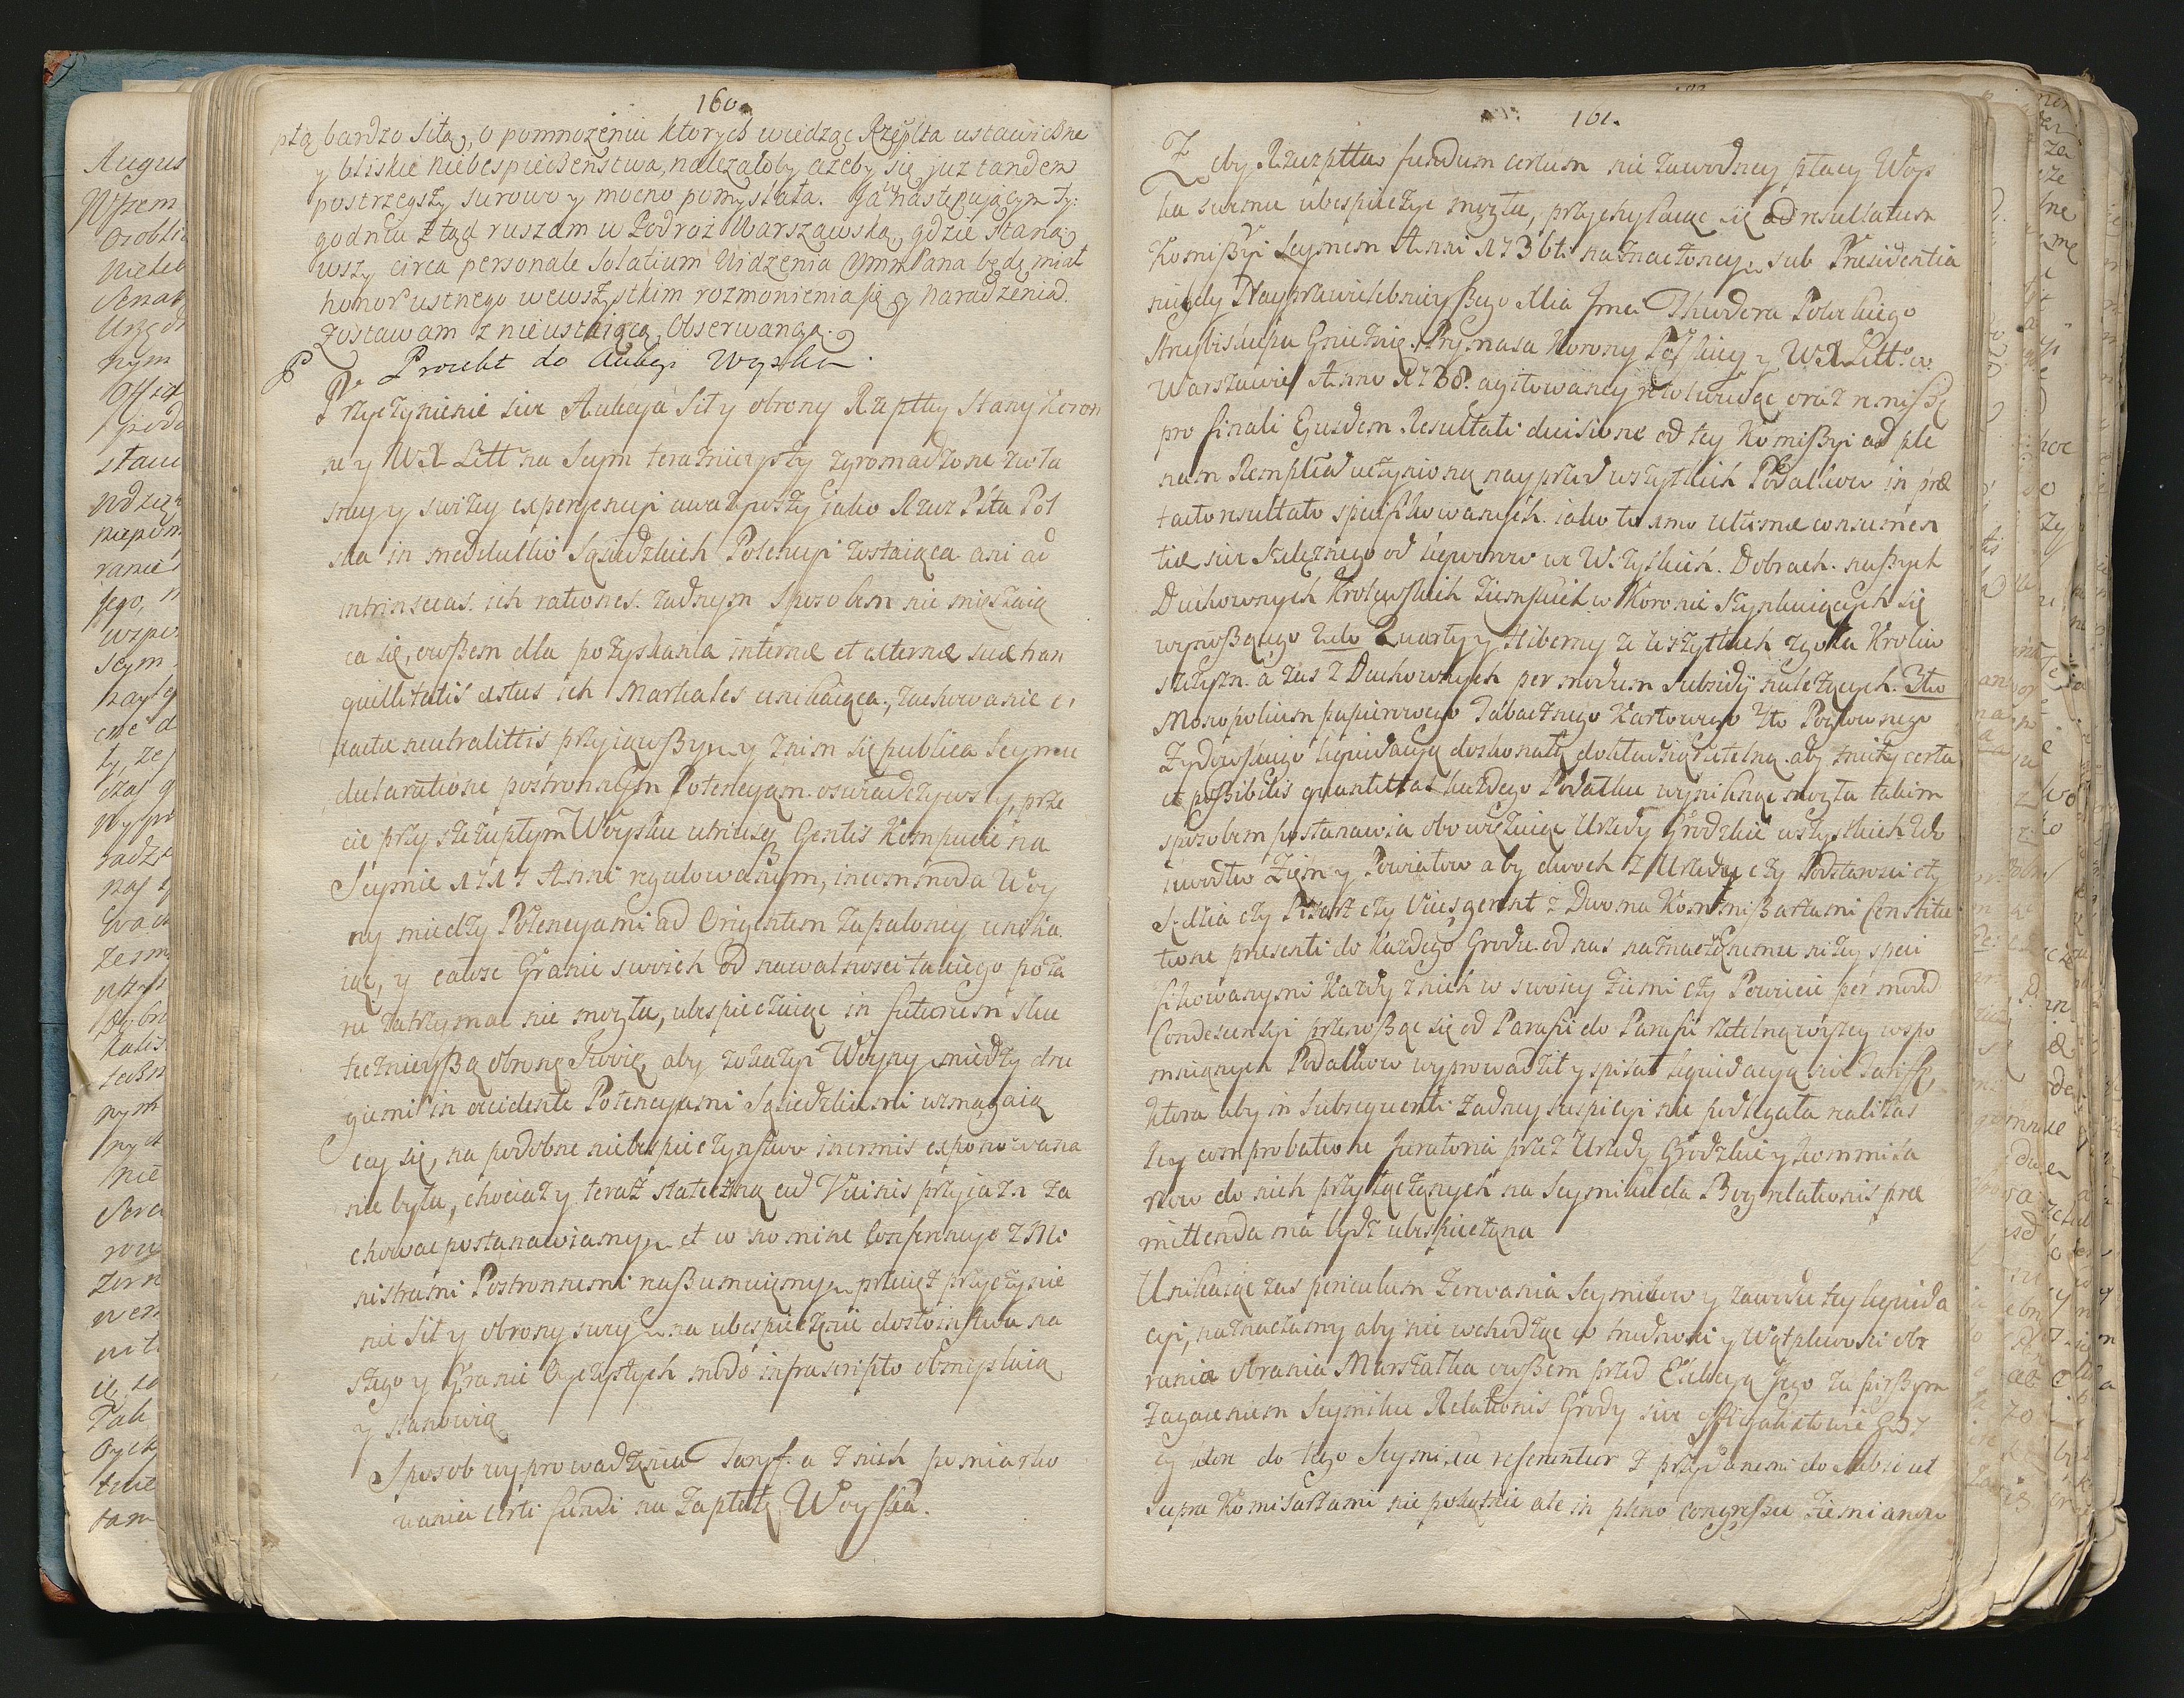 160.
ptą bardzo siłą, o pomnozeniu ktorych widząc Rzęplta ustawiczne
y bliskie niebespieczenstwa, nalezałoby azeby się juz tandem
postrzegszy surowo y mocno pomyslała. Ja w następującym Ty:
godniu z tąd ruszam w Podroz Warszawską, gdzie staną
wszy circa personale solatium Widzenia Pana będę miał
honor ustnego wewszystkim rozmowienia się y naradzenia.
Zostawam z nieustaiącą Obserwancyą.
Proiekt do Aukcyi Woyska
Przyczynienie siue Aukcyą Siły obrony Rzeptty Stany Koron
ne y WX Litt na Seym teraznieyszy zgromadzone zwła
sney y swiezy experyencyi uwazywszy iako Rzecz Plta Pol
ska in medullio Sąsiedzkich Potencyi zostaiąca ani ad
intrinsecas ich rationes zadnym sposobem nie mięszaią
ca się, owszem dla pozyskania internæ et externæ suæ tran
quillitatis æstus ich Martiales unikaiąca, zachowanie e
xacta neutralittis przyiąwszy y z nim się publica Seymu
declaratione postronnym Potencyom oswiadczywszy, prze
cie przy szczupłym Woysku utriusq Gentis Kompucie na
Seymie 1717 Anni regulowanym, incommoda Woy
ny miedzy Potencyami ad Orientem zapaloney unika
iąc, y całosc Granic swoich od nawalnosci takiego poza
ru zatrzymac nie mogła, ubespieczaiąc in futurum sku
tecznieyszą obronę swoię, aby zokazyi Woyny miedzy dru
giemi in occidente Potencyami Sąsiedzkiemi wzmagaią
cey się, na podobne niebespieczynstwo inermis exponowana
nie była, chociaz y teraz stateczną cum Vicinis przyiazn za
chowac postanawiamy, et in nomine conferuiąc z Mi
nistrami Postronnemi naszemi przeciez przyczynie
nie Sił y obrony swey na ubespieczenie dostoinstwa na
szego y Granic Oyczystych modo infrascripto obmyslaią
y stanowią
Sposob wyprowadzenia Taryf. a z nich pomiarko
wania certi fundi na Zapłatę Woyska.
161.
Zeby Rzeczptta fundum certum nie zawodney płacy Woys
ku swemu ubespieczyc mogła, przychylaiąc się ad resultatum
Komissyi Seymem Anni 1736to naznaczoney, sub Præsidentia
niegdy Nayprzewielebnieyszego Mci Jmci Theodora Potockiego
Arcybiskupa Gniezn. Prymasa Korony Polskiey y WX Litt. w
Warszawie Anno 1738. agitowaney
pro finali Ejusdem Resultati decisione od tey Komissyi ad ple
nam Remplcæ uczynioną nayprzod wszystkich Podatkow in præ
tacto resultato specifikowanych. iako to 1mo Ultimæ consumen
tiæ siue Szelęznego od likworow we Wszystkich Dobrach naszych
Duchownych Krolewskich Ziemskich w Koronie Szynkuiących się
wynoszącego 2do Quarty y Hiberny ze wszystkich zgoła Krolew
szczyzn. a zas z Duchownych per modum Subsidÿ nalezących. 3tio
Monopolium papierowego Tabacznego Kartowego 4to Pogłownego
Zydowskiego liquidacyą doskonałą dokładną rzetelną aby z niey certa
et possibilis quantitas kazdego Podatku wyniknąc mogła takim
sposobem postanawia obowięzuiąc Urzędy Grodzkie wszystkich Wo
iewodztw Ziem y Powiatow aby dwoch z Urzędu czy Podstarosci czy
Sędzia czy Pisarz czy Vicesgerent z Dwoma Kommissarzami Constitu
tione præsenti do kazdego Grodu od nas naznaczonemi nizey speci
fikowanymi kazdy z nich w swoiey Ziemi czy Powiecie per modum
Condescensyi przenosząc się od Parafii do Parafii rzetelną wyzey wspo
mnianych Podatkow wyprowadził y spisał liquidacyą siue Taryffę,
ktora aby in subsequenti zadney suspicyi nie podlegała realitas
tey comprobatione juratoria przez Urzędy Grodzkie y Kommissa
rzow do nich przyłączonych na Seymiku da Bog relationis præ
mittenda ma bydz ubespieczona
Unikaiąc zas periculum zerwania Seymikow y zawodu tey liquida
cyi, naznaczamy aby nie wchodząc w trudnosci y Wątpliwosci ob
rania Marszałka owszem przed Elekcyą Jego za pirszym
zagaieniem Seymiku Relationis Grody siue
ktore do tego Seymiku referentur z przydanemi do siebie ut
supra Komisarzami nie potocznie ale in pleno congressu Ziemianow